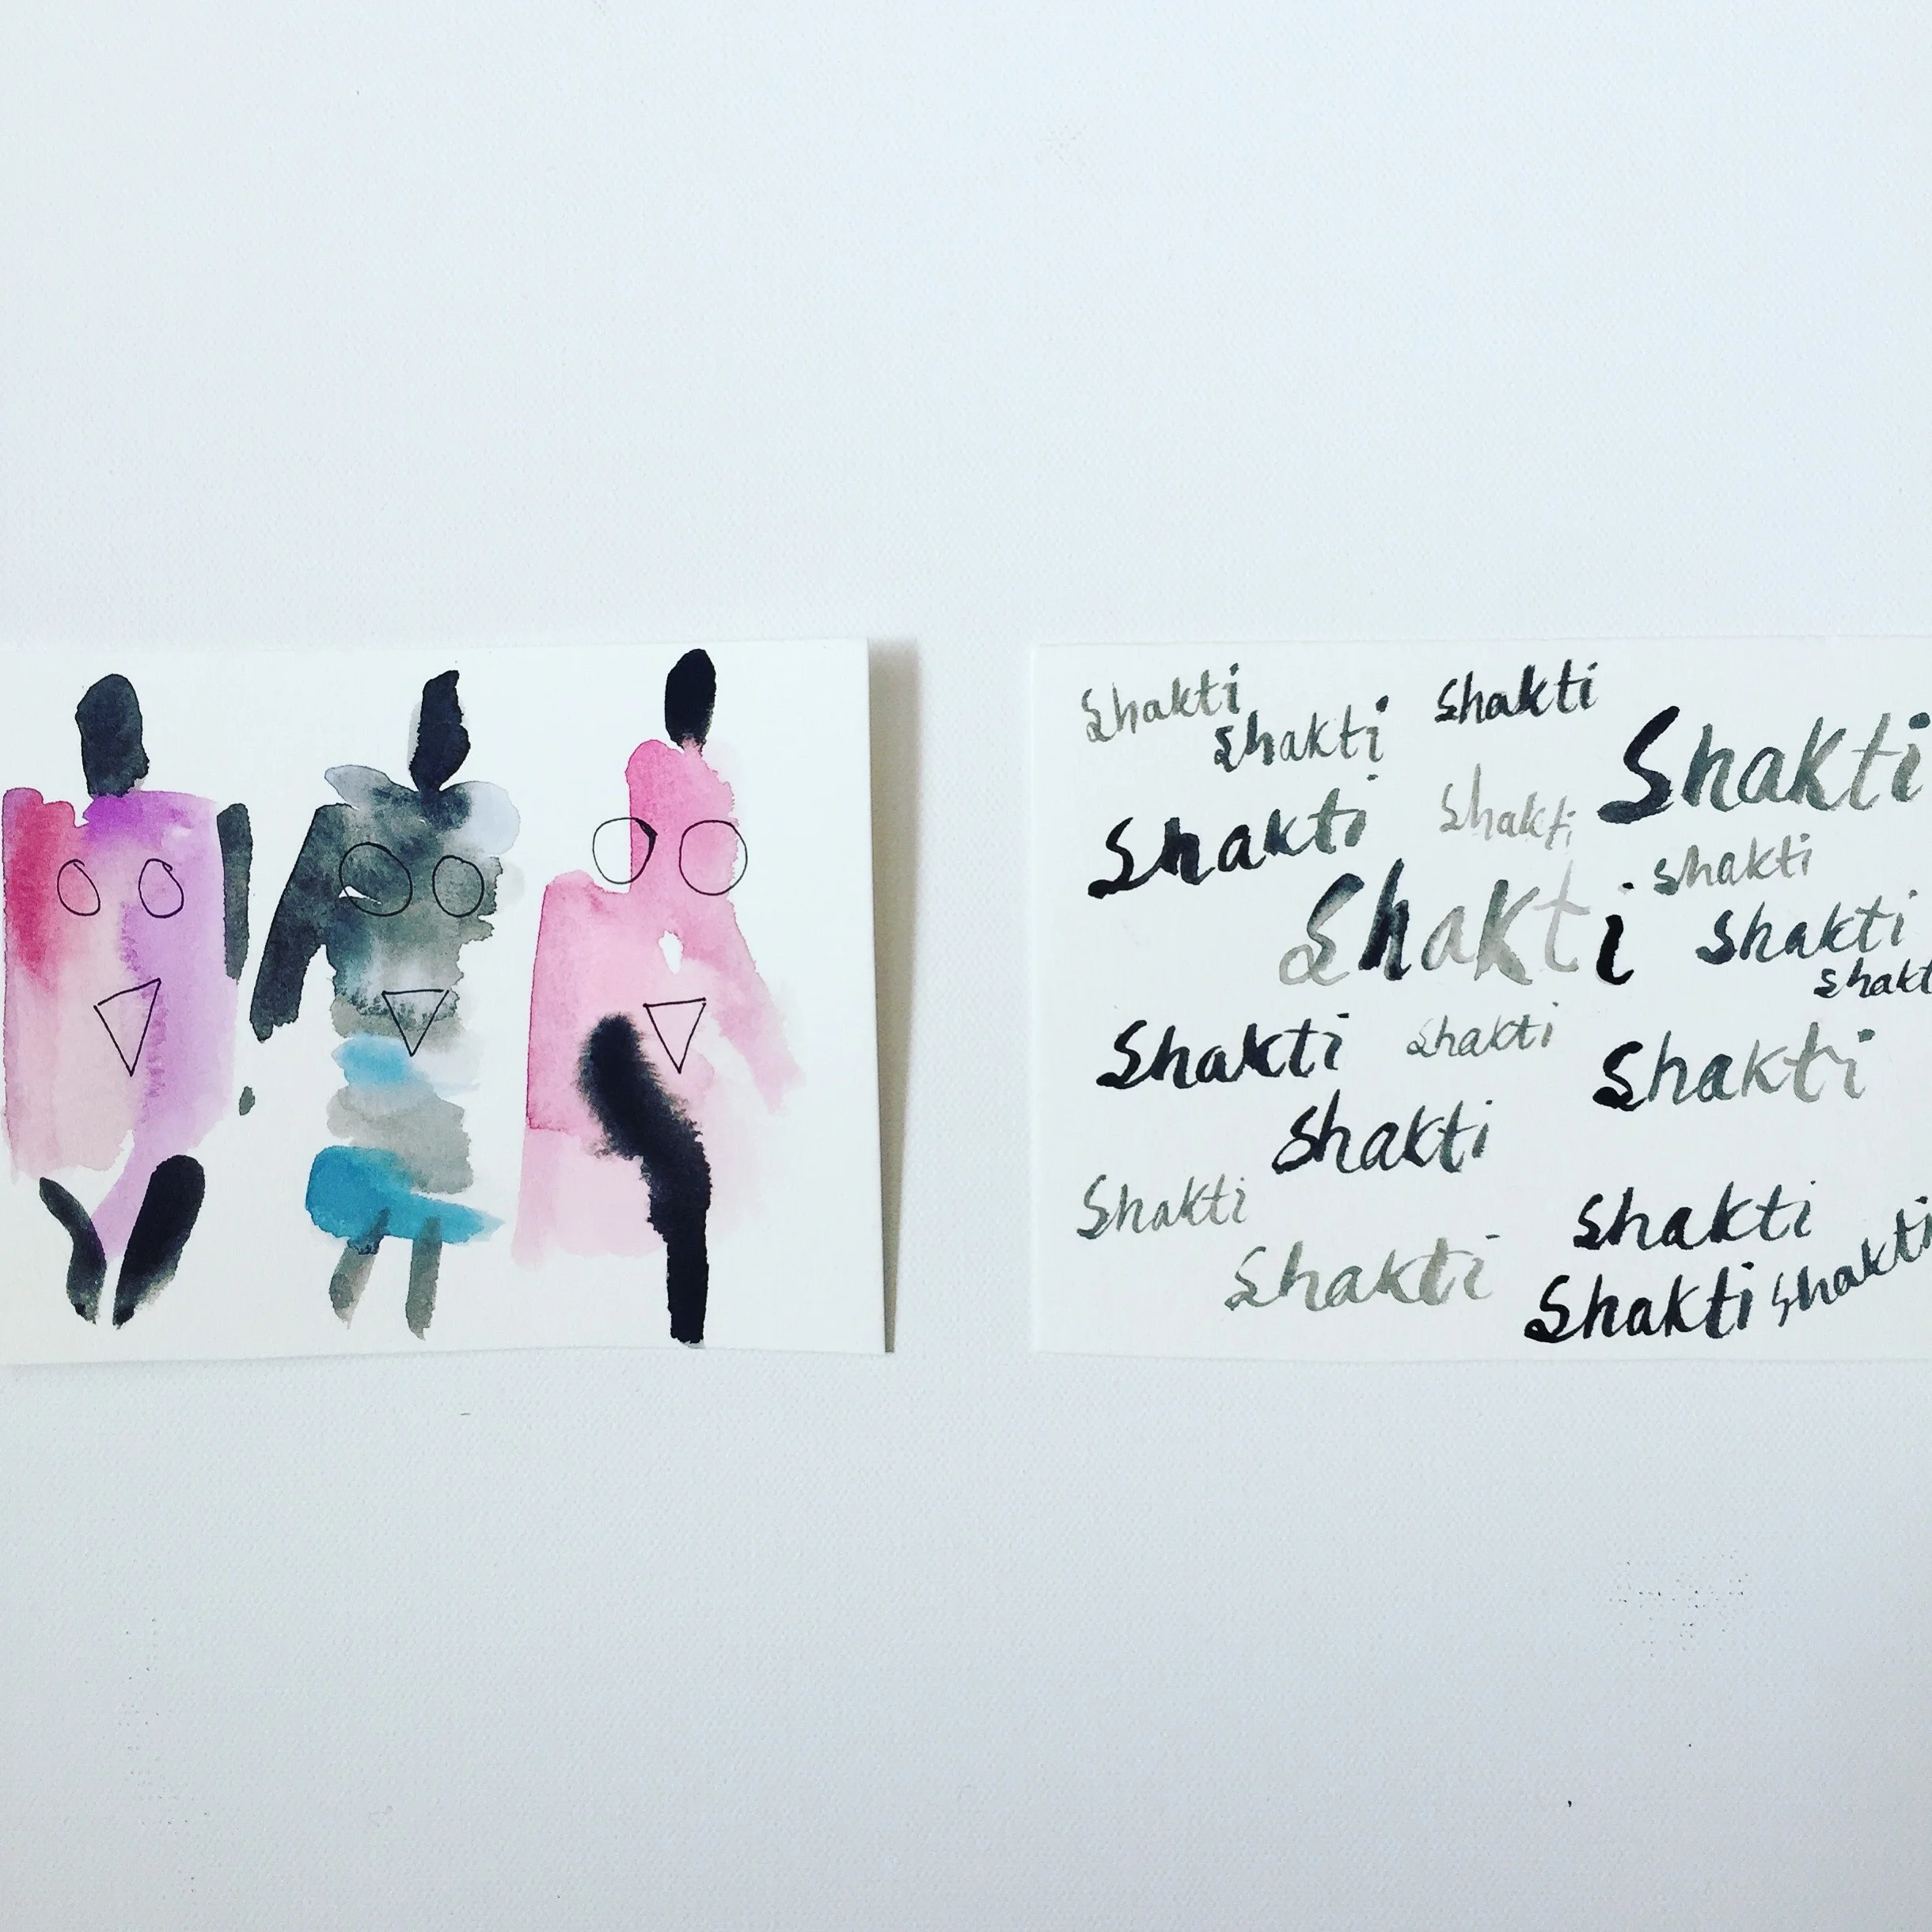 Shakti
Shakti
Shakti
Shakti
Shakti
Shakti
Shakti
Shakti
Shakti
Shakti
Shakt
Shakti
Shakti
Shakti
Shakti
Shakti
Shakti
Shakti
Shakti
Shakti